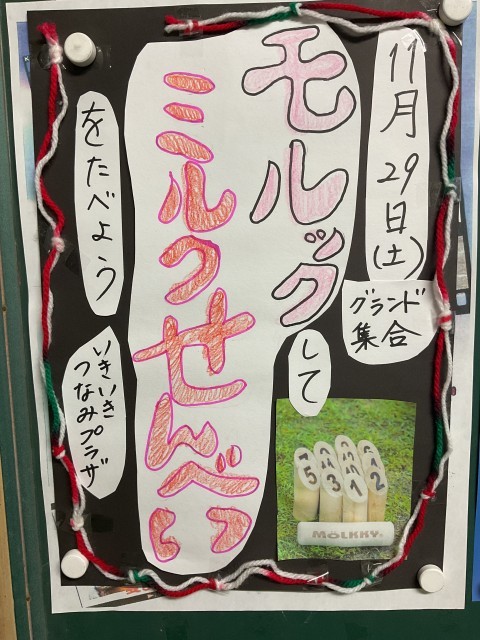 11月29日(土)
グランド
集合
モルック
して
ミニミルク
せんべい
をたべよう
いきいき
つなみプラザ
5 3 1 2
MÖLKKY